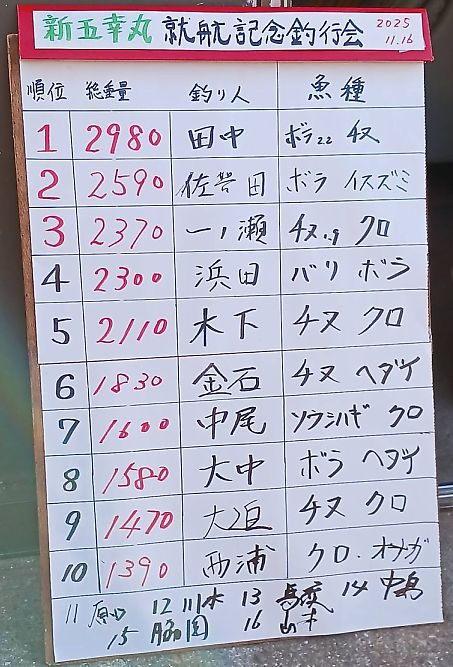 新五幸丸 就航記念釣行会 2025 11.16
順位 総重量 釣り人 魚種
1 2980 田中 ボラ22 チヌ
2 2590 佐誉田 ボラ イスズミ
3 2370 一ノ瀬 チヌ1.9 クロ
4 2300 浜田 バリ ボラ
5 2110 木下 チヌ クロ
6 1830 金石 チヌ ヘダイ
7 1600 中尾 ソウシハギ クロ
8 1580 大中 ボラ ヘダイ
9 1470 クロ チヌ
10 1390 西浦 クロ・オナガ
11 原口 12 川本 13 14 中島
15 16 山本